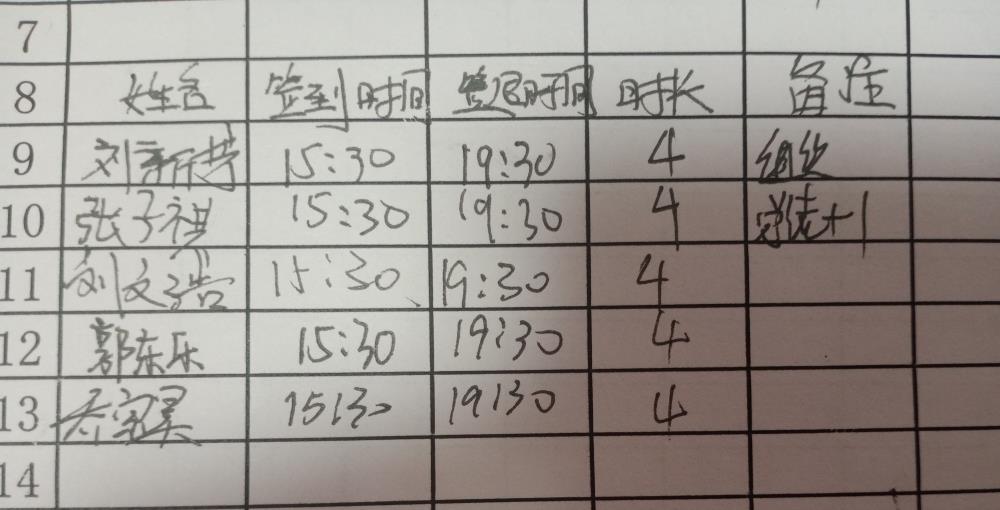 7
8 姓名 签到时间 签退时间 时长 备注
9 刘新芳 15:30 19:30 4 组长
10 张子祺 15:30 19:30 4 +1
11 刘文浩 15:30 19:30 4
12 郭东乐 15:30 19:30 4
13 15:30 19:30 4
14